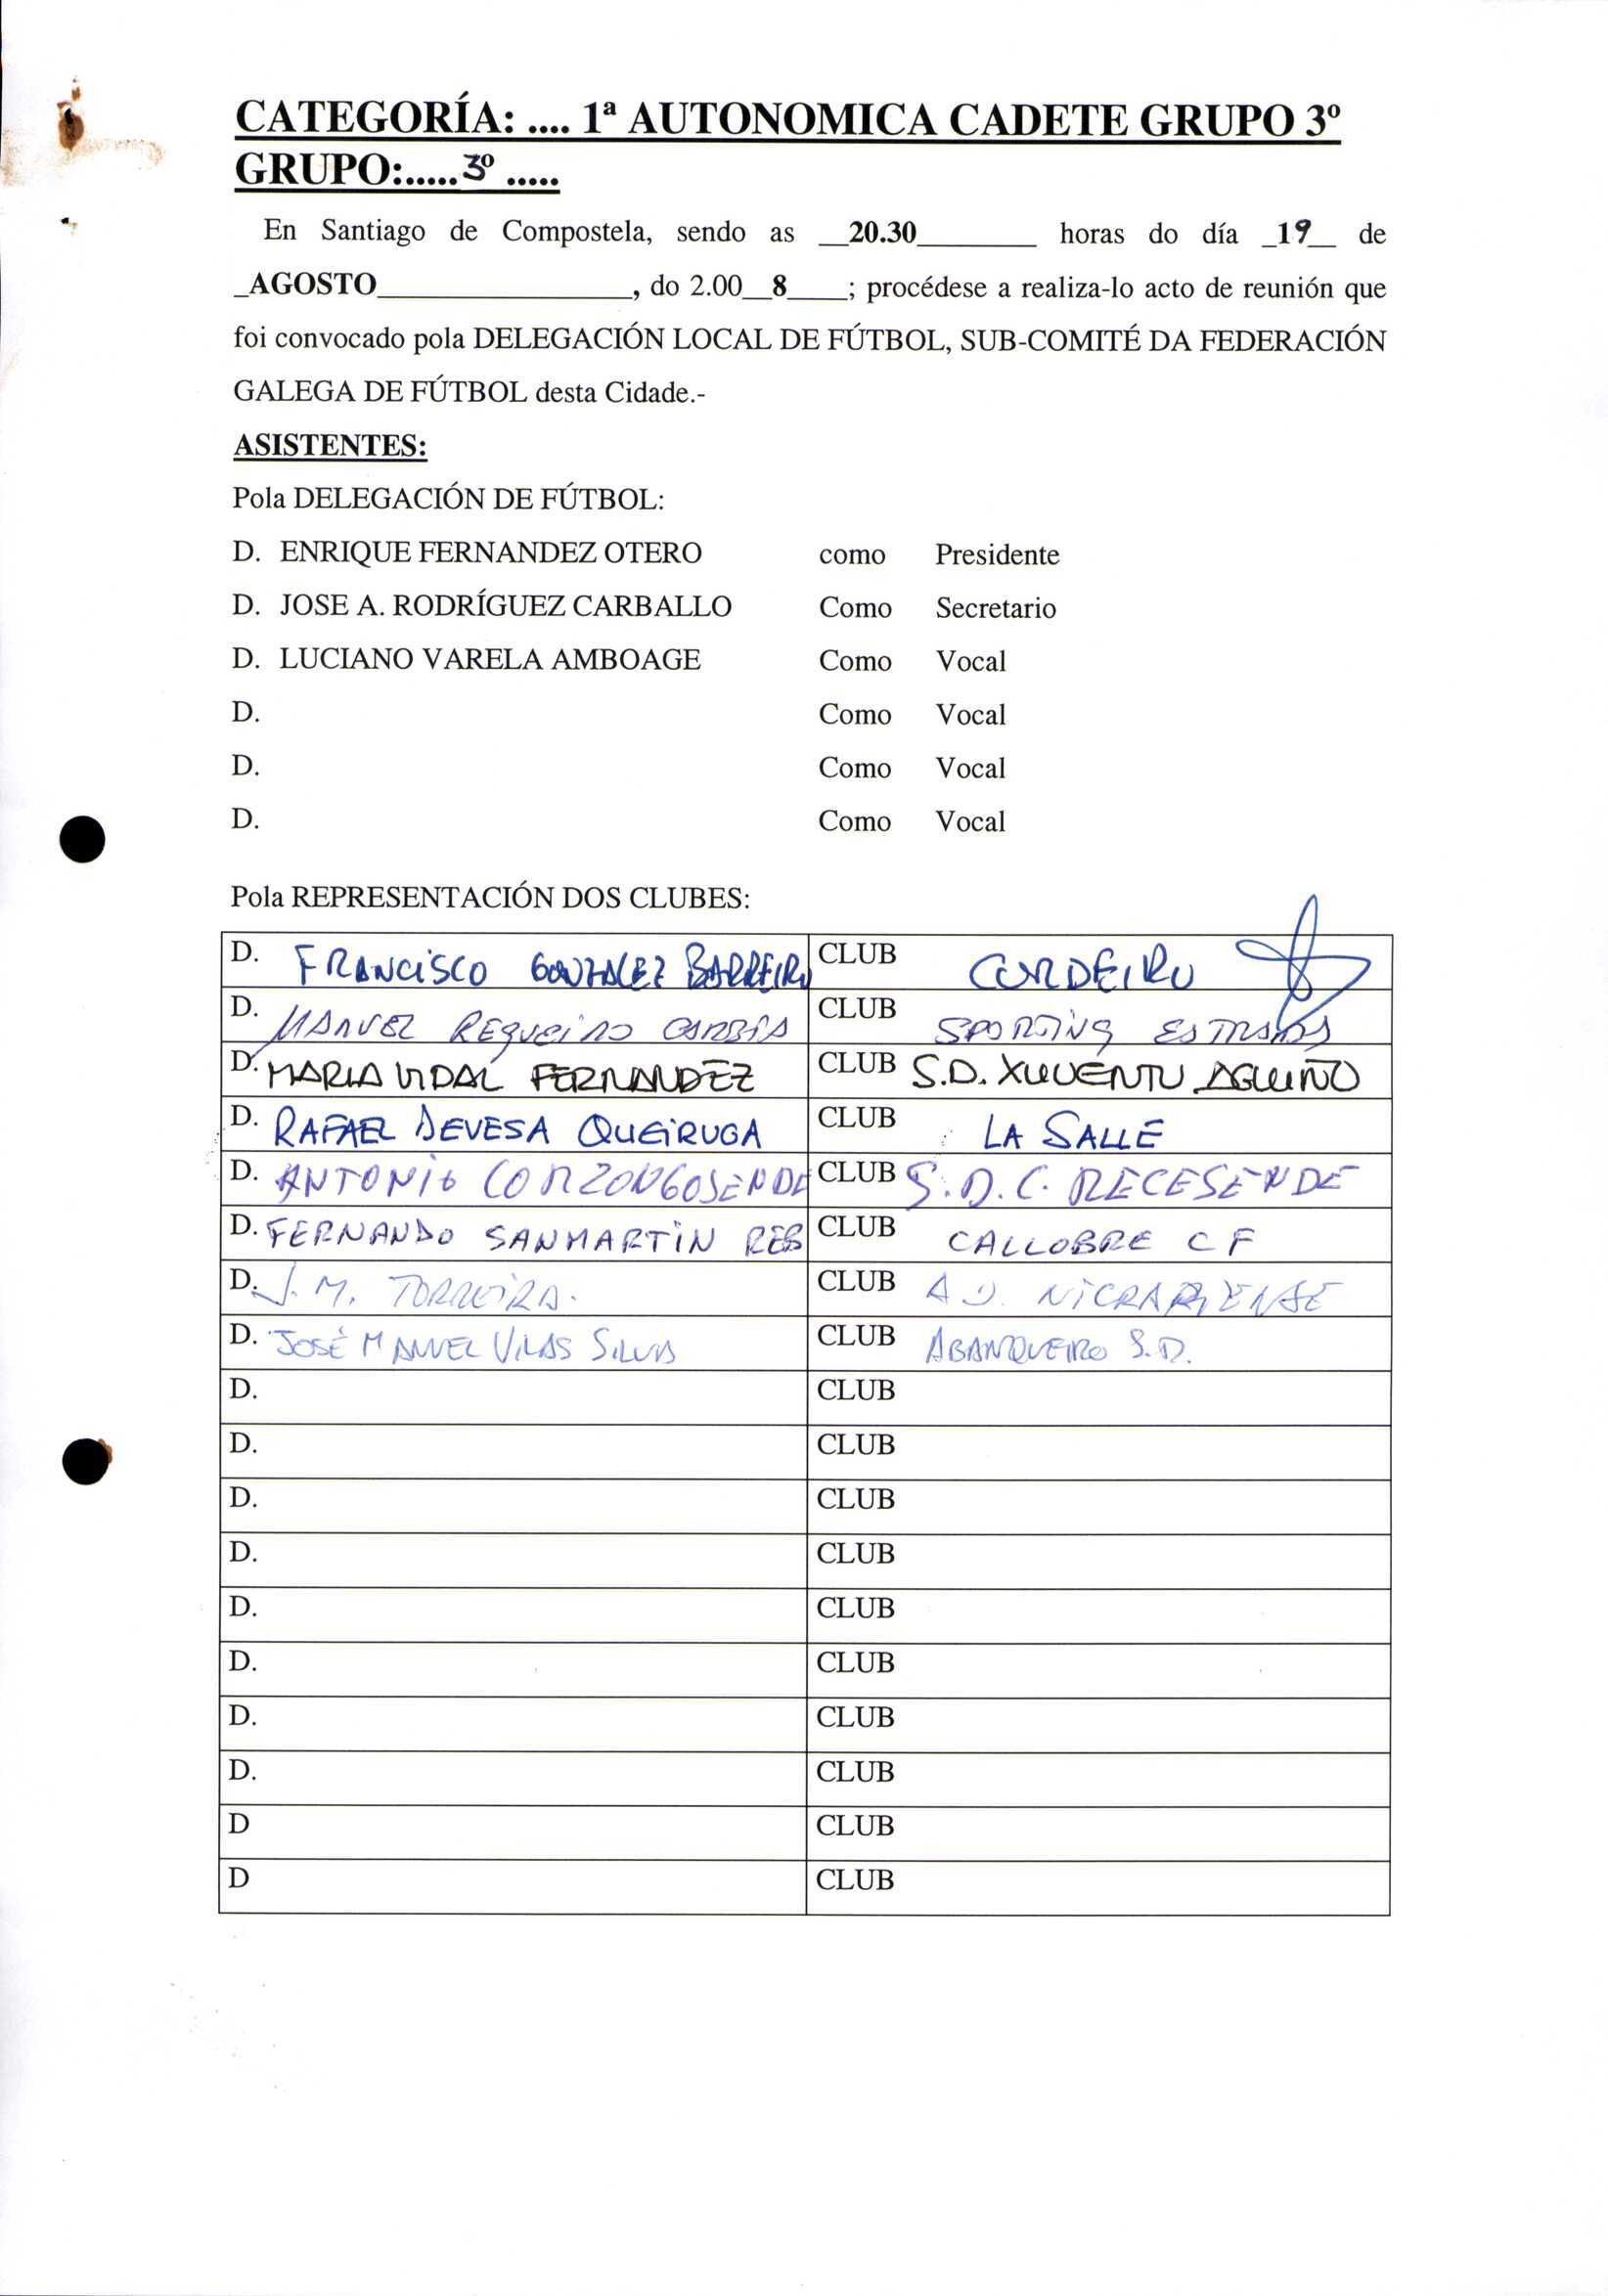 CATEGORÍA: .... 1ª AUTONOMICA CADETE GRUPO 3º
GRUPO:.....3º.....
En Santiago de Compostela, sendo as __20.30________ horas do día _19__ de
_AGOSTO_________________, do 2.00__8____; procédese a realiza-lo acto de reunión que
foi convocado pola DELEGACIÓN LOCAL DE FÚTBOL, SUB-COMITÉ DA FEDERACIÓN
GALEGA DE FÚTBOL desta Cidade.-
ASISTENTES:
Pola DELEGACIÓN DE FÚTBOL:
D. ENRIQUE FERNANDEZ OTERO como Presidente
D. JOSE A. RODRÍGUEZ CARBALLO Como Secretario
D. LUCIANO VARELA AMBOAGE Como Vocal
D. Como Vocal
D. Como Vocal
D. Como Vocal
Pola REPRESENTACIÓN DOS CLUBES:
D. FRANCISCO GONZALEZ BARREIRO CLUB CORDEIRO
D. MANUEL REQUEIJO CLUB SPORTING
D. MARIA VIDAL FERNANDEZ CLUB S.D. XUVENTU AGUIÑO
D. RAFAEL DEVESA QUEIRUGA CLUB LA SALLE
D. ANTONIO GOSENDE CLUB S.D.C. RECESENDE
D. FERNANDO SANMARTIN REB CLUB CALLOBRE C F
D. J. M. TORREIRA. CLUB A D.
D. JOSÉ MANUEL VILAS SILVA CLUB ABANQUEIRO S.D.
D. CLUB
D. CLUB
D. CLUB
D. CLUB
D. CLUB
D. CLUB
D. CLUB
D. CLUB
D CLUB
D CLUB